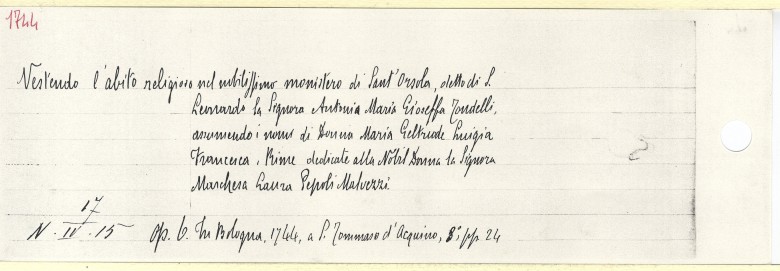 1744
Vestendo l'abito religioso nel nobilissimo monistero di Sant'Orsola, detto di S.
Leonardo la Signora Antonia Maria Gioseffa Tondelli,
assumendo i nomi di Donna Maria Geltrude Luigia
Francesca. Rime dedicate alla Nobil Donna la Signora
Marchesa Laura Pepoli Malvezzi.
17
N. IV. 15 Op. 6. In Bologna, 1744, a S. Tommaso d'Acquino, 8°, pp. 24